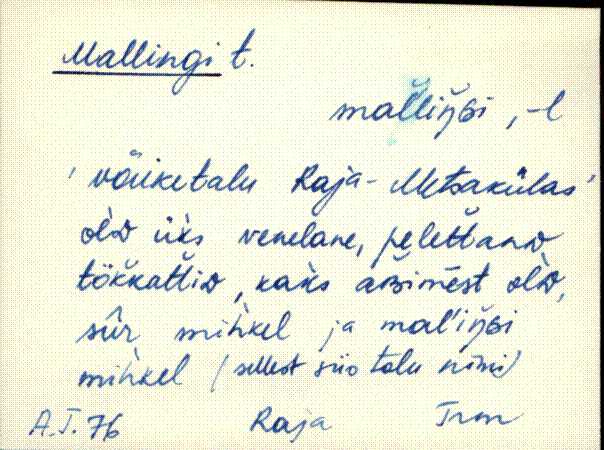 Mallingi t.
mal̆liŋGi, -l
'väiketalu Raja-Metsakülas'
òlD üks venelane, pelettanD
tökkattiD, kaks aBimest òlD,
sûr mihkel ja mal'iŋGi
mihkel (sellest siis talu nimi)
A.T. 76 Raja Trm